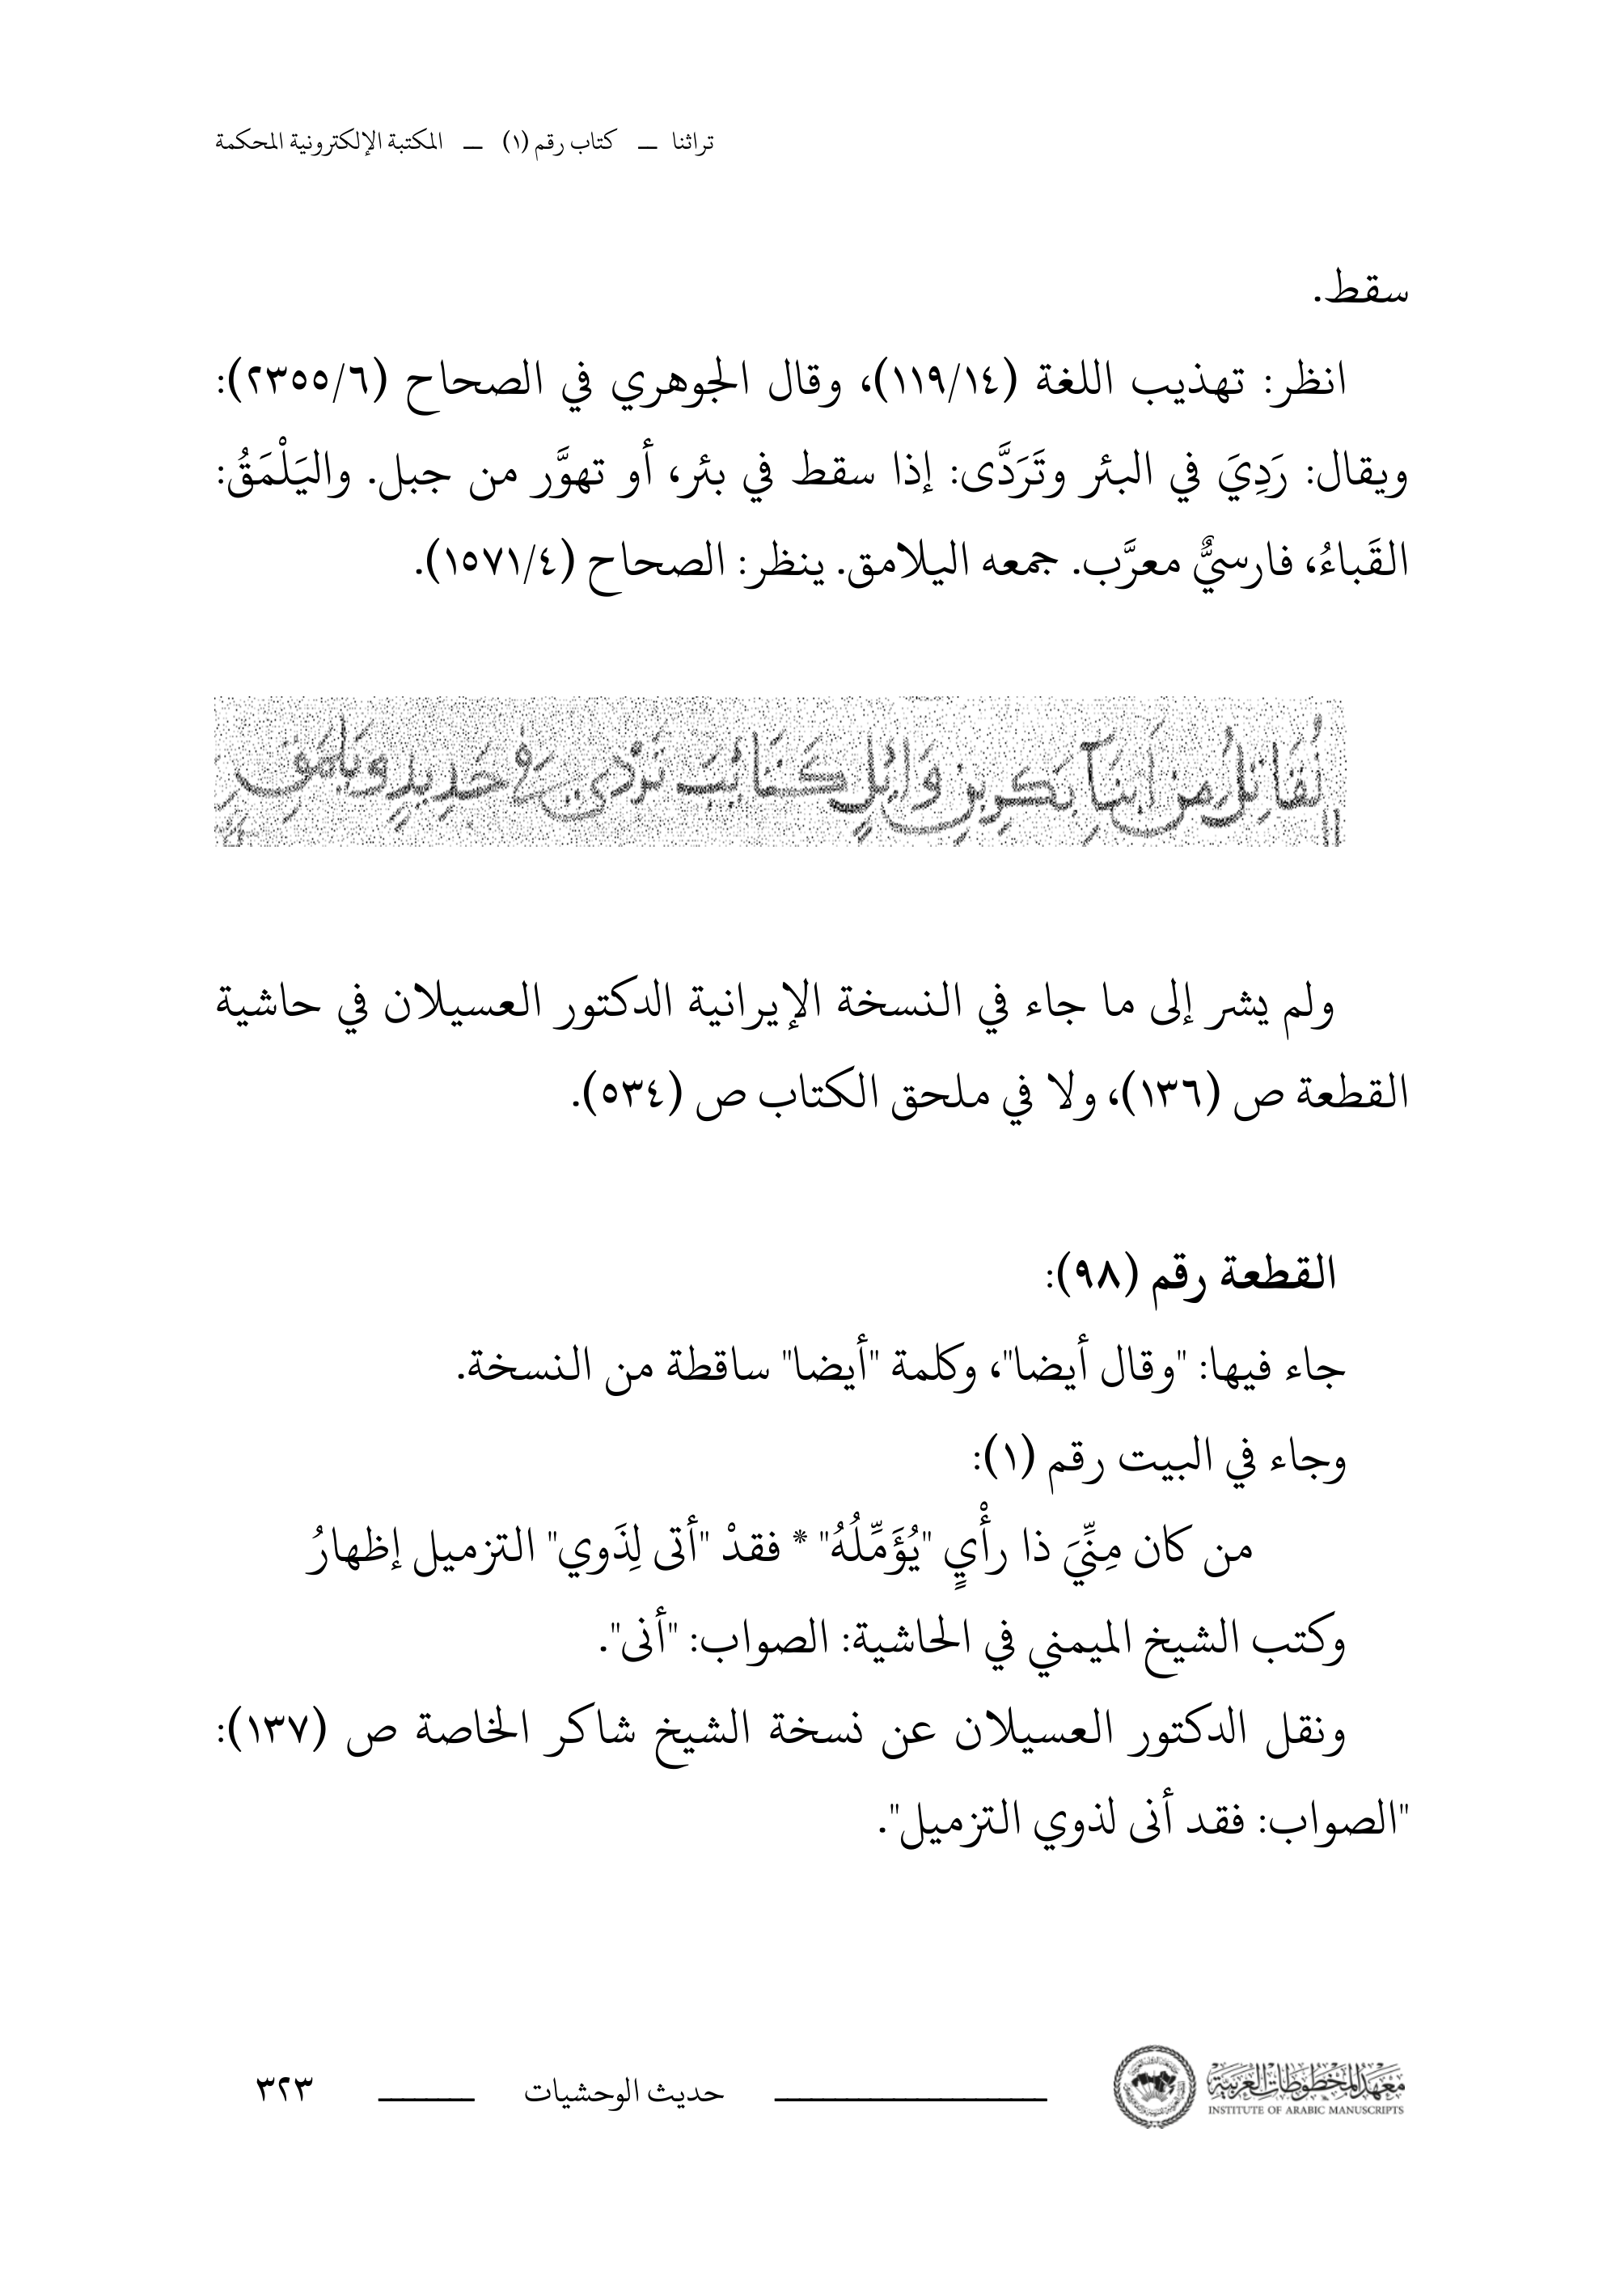 تراثنا — كتاب رقم (١) — المكتبة الإلكترونية المحكمة
سقط.
انظر: تهذيب اللغة (١١٩/١٤)، وقال الجوهري في الصحاح (٢٣٥٥/٦):
ويقال: رَدِيَ في البئر وتَرَدَّى: إذا سقط في بئر، أو تهوَّر من جبل. واليَلْمَقُ:
القَباءُ، فارسيٌّ معرَّب. جمعه اليلامق. ينظر: الصحاح (١٥٧١/٤).
نُقَاتِلُ مِن اَبنَآ بَكرِ بنِ وَائِلٍ كَتَائبَ تَرْدِي في حَدِيدٍ ويَلمَقِ
ولم يشر إلى ما جاء في النسخة الإيرانية الدكتور العسيلان في حاشية
القطعة ص (١٣٦)، ولا في ملحق الكتاب ص (٥٣٤).
القطعة رقم (٩٨):
جاء فيها: "وقال أيضا"، وكلمة "أيضا" ساقطة من النسخة.
وجاء في البيت رقم (١):
من كان مِنِّيَ ذا رأْيٍ "يُؤَمِّلُهُ" * فقدْ "أتى لِذَوي" التزميل إظهارُ
وكتب الشيخ الميمني في الحاشية: الصواب: "أنى".
ونقل الدكتور العسيلان عن نسخة الشيخ شاكر الخاصة ص (١٣٧):
"الصواب: فقد أنى لذوي التزميل".
معهد المخطوطات العربية
INSTITUTE OF ARABIC MANUSCRIPTS
حديث الوحشيات
٣٢٣